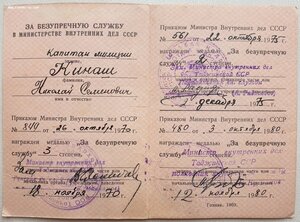 ЗА БЕЗУПРЕЧНУЮ СЛУЖБУ
В МИНИСТЕРСТВЕ ВНУТРЕННИХ ДЕЛ СССР
Капитан милиции
Кинаш
фамилия
Николай Семенович
имя и отчество
Приказом Министра Внутренних Дел СССР
№ 841 от 26 октября 1970 г.
награжден медалью „За безупречную
службу“ 3 степени
Министр внутренних дел
18 ноября 1970
Приказом Министра Внутренних Дел СССР
№ 561 от 22 октября 1975 г.
награжден медалью „За безупречную
службу“ 2
декабря 1975
Приказом Министра Внутренних Дел СССР
№ 480 от 3 октября 1980 г.
награжден медалью „За безупречную
службу“ 1 степени
Министр внутренних дел
12 ноября 1980 г.
Гознак. 1969.